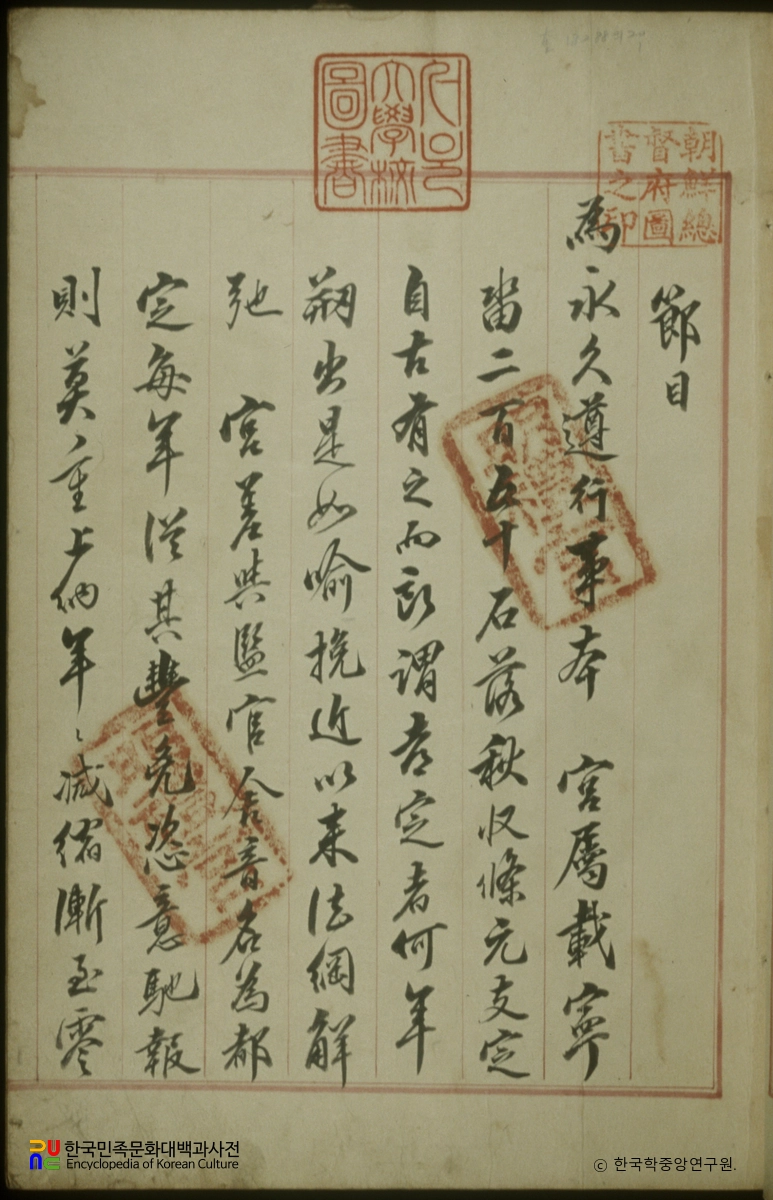 서울大學校圖書
朝鮮總督府圖書之印
節目
為永久遵行事本 宮屬載寧
畓二百五十石落秋収條元支定
自古有之而所謂都定者何年
刱出是如喻挽近以來法綱解
弛 宮差與監官舍音名為都
定每年從其豊兇恣意馳報
則莫〻重上納年〻減縮漸至零
한국민족문화대백과사전
Encyclopedia of Korean Culture
© 한국학중앙연구원.